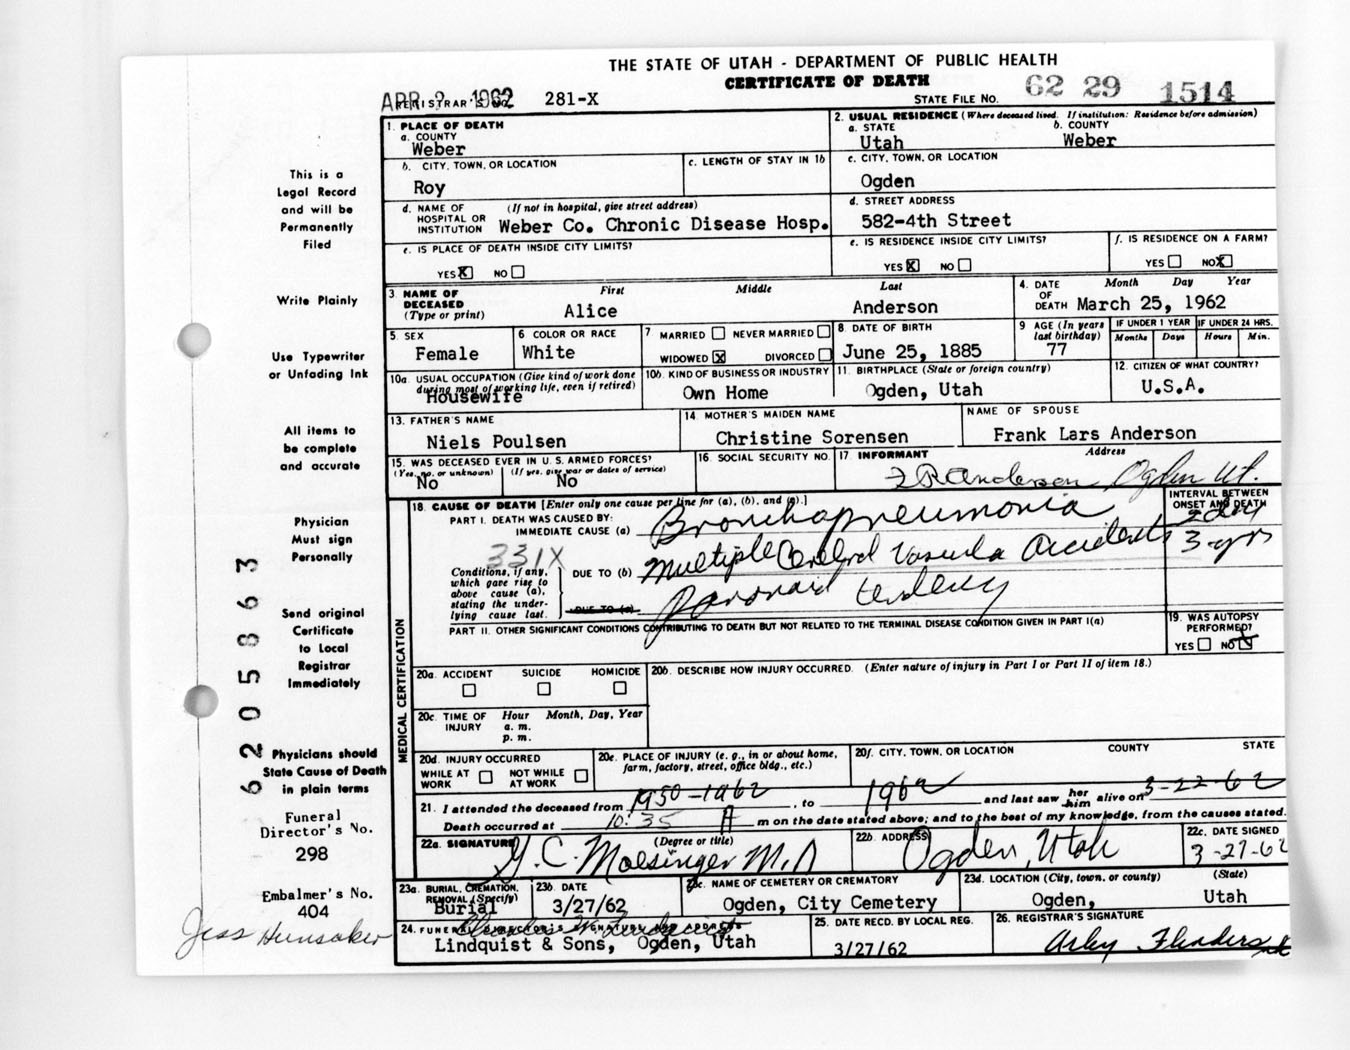 THE STATE OF UTAH - DEPARTMENT OF PUBLIC HEALTH
CERTIFICATE OF DEATH
APR 2 1962 REGISTRAR'S NO. 281-X
STATE FILE NO. 62 29 1514
This is a Legal Record and will be Permanently Filed
Write Plainly
Use Typewriter or Unfading Ink
All items to be complete and accurate
Physician Must sign Personally
Send original Certificate to Local Registrar Immediately
Physicians should State Cause of Death in plain terms
Funeral Director's No.
298
Embalmer's No.
404
Jess Hunsaker
62 05863
1. PLACE OF DEATH
a. COUNTY
Weber
2. USUAL RESIDENCE (Where deceased lived. If institution: Residence before admission)
a. STATE b. COUNTY
Utah Weber
b. CITY, TOWN, OR LOCATION
Roy
c. LENGTH OF STAY IN 1b
c. CITY, TOWN, OR LOCATION
Ogden
d. NAME OF HOSPITAL OR INSTITUTION (If not in hospital, give street address)
Weber Co. Chronic Disease Hosp.
d. STREET ADDRESS
582-4th Street
e. IS PLACE OF DEATH INSIDE CITY LIMITS?
YES X NO
e. IS RESIDENCE INSIDE CITY LIMITS?
YES X NO
f. IS RESIDENCE ON A FARM?
YES NO X
3 NAME OF DECEASED (Type or print) First Middle Last
Alice Anderson
4. DATE OF DEATH Month Day Year
March 25, 1962
5 SEX
Female
6 COLOR OR RACE
White
7 MARRIED NEVER MARRIED
WIDOWED X DIVORCED
8 DATE OF BIRTH
June 25, 1885
9 AGE (In years last birthday)
77
IF UNDER 1 YEAR IF UNDER 24 HRS.
Months Days Hours Min.
10a. USUAL OCCUPATION (Give kind of work done during most of working life, even if retired)
Housewife
10b. KIND OF BUSINESS OR INDUSTRY
Own Home
11. BIRTHPLACE (State or foreign country)
Ogden, Utah
12. CITIZEN OF WHAT COUNTRY?
U.S.A.
13. FATHER'S NAME
Niels Poulsen
14. MOTHER'S MAIDEN NAME
Christine Sorensen
NAME OF SPOUSE
Frank Lars Anderson
15. WAS DECEASED EVER IN U.S. ARMED FORCES?
(Yes, no, or unknown) (If yes, give war or dates of service)
No No
16. SOCIAL SECURITY NO.
17 INFORMANT Address
Anderson Ogden Ut.
18. CAUSE OF DEATH [Enter only one cause per line for (a), (b), and (c).]
INTERVAL BETWEEN ONSET AND DEATH
PART I. DEATH WAS CAUSED BY:
IMMEDIATE CAUSE (a) Bronchopneumonia
331X
Conditions, if any, which gave rise to above cause (a), stating the under-lying cause last.
DUE TO (b) Multiple Cerebral Vascula Accidents 3-yrs
DUE TO (c)
PART II. OTHER SIGNIFICANT CONDITIONS CONTRIBUTING TO DEATH BUT NOT RELATED TO THE TERMINAL DISEASE CONDITION GIVEN IN PART I(a)
19. WAS AUTOPSY PERFORMED?
YES NO X
MEDICAL CERTIFICATION
20a. ACCIDENT SUICIDE HOMICIDE
20b. DESCRIBE HOW INJURY OCCURRED. (Enter nature of injury in Part I or Part II of item 18.)
20c. TIME OF INJURY Hour Month, Day, Year
a. m.
p. m.
20d. INJURY OCCURRED
WHILE AT WORK NOT WHILE AT WORK
20e. PLACE OF INJURY (e. g., in or about home, farm, factory, street, office bldg., etc.)
20f. CITY, TOWN, OR LOCATION COUNTY STATE
21. I attended the deceased from 1950-1962, to 1962 and last saw her him alive on 3-22-62
Death occurred at 10:35 A m on the date stated above; and to the best of my knowledge, from the causes stated.
22a. SIGNATURE (Degree or title)
G. C. Moesinger M.D
22b. ADDRESS
Ogden, Utah
22c. DATE SIGNED
3-27-62
23a. BURIAL, CREMATION, REMOVAL (Specify)
Burial
23b. DATE
3/27/62
23c. NAME OF CEMETERY OR CREMATORY
Ogden, City Cemetery
23d. LOCATION (City, town, or county) (State)
Ogden, Utah
24. FUNERAL DIRECTOR'S SIGNATURE AND ADDRESS
Lindquist & Sons, Ogden, Utah
25. DATE RECD. BY LOCAL REG.
3/27/62
26. REGISTRAR'S SIGNATURE